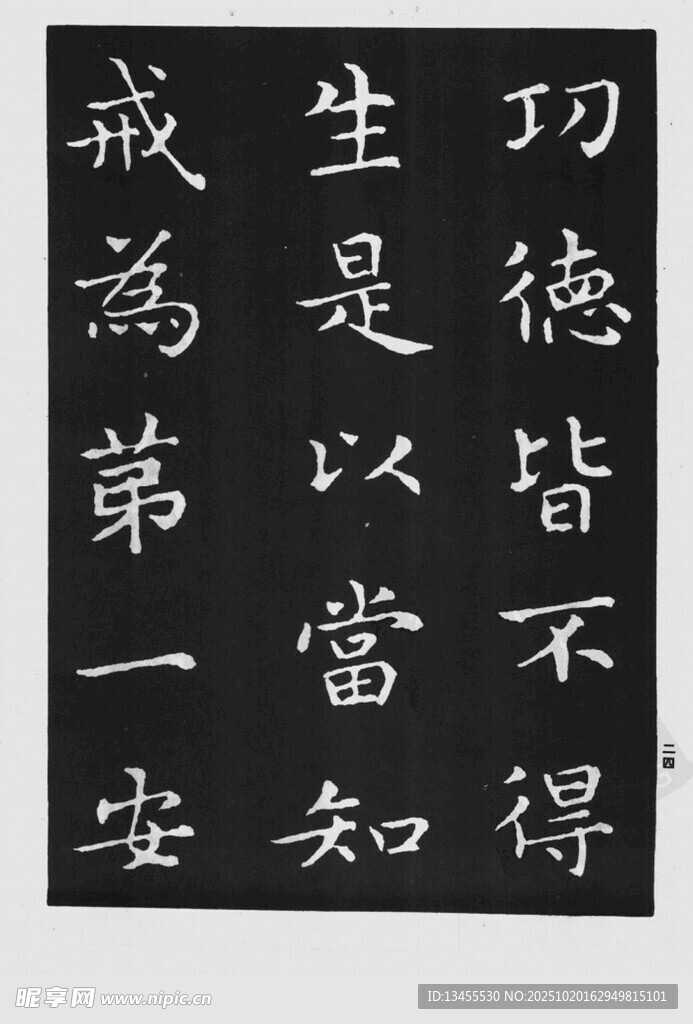 㓛德皆不得
生是以當知
戒為苐一安
二四
昵享网 www.nipic.cn
ID:13455530 NO:20251020162949815101